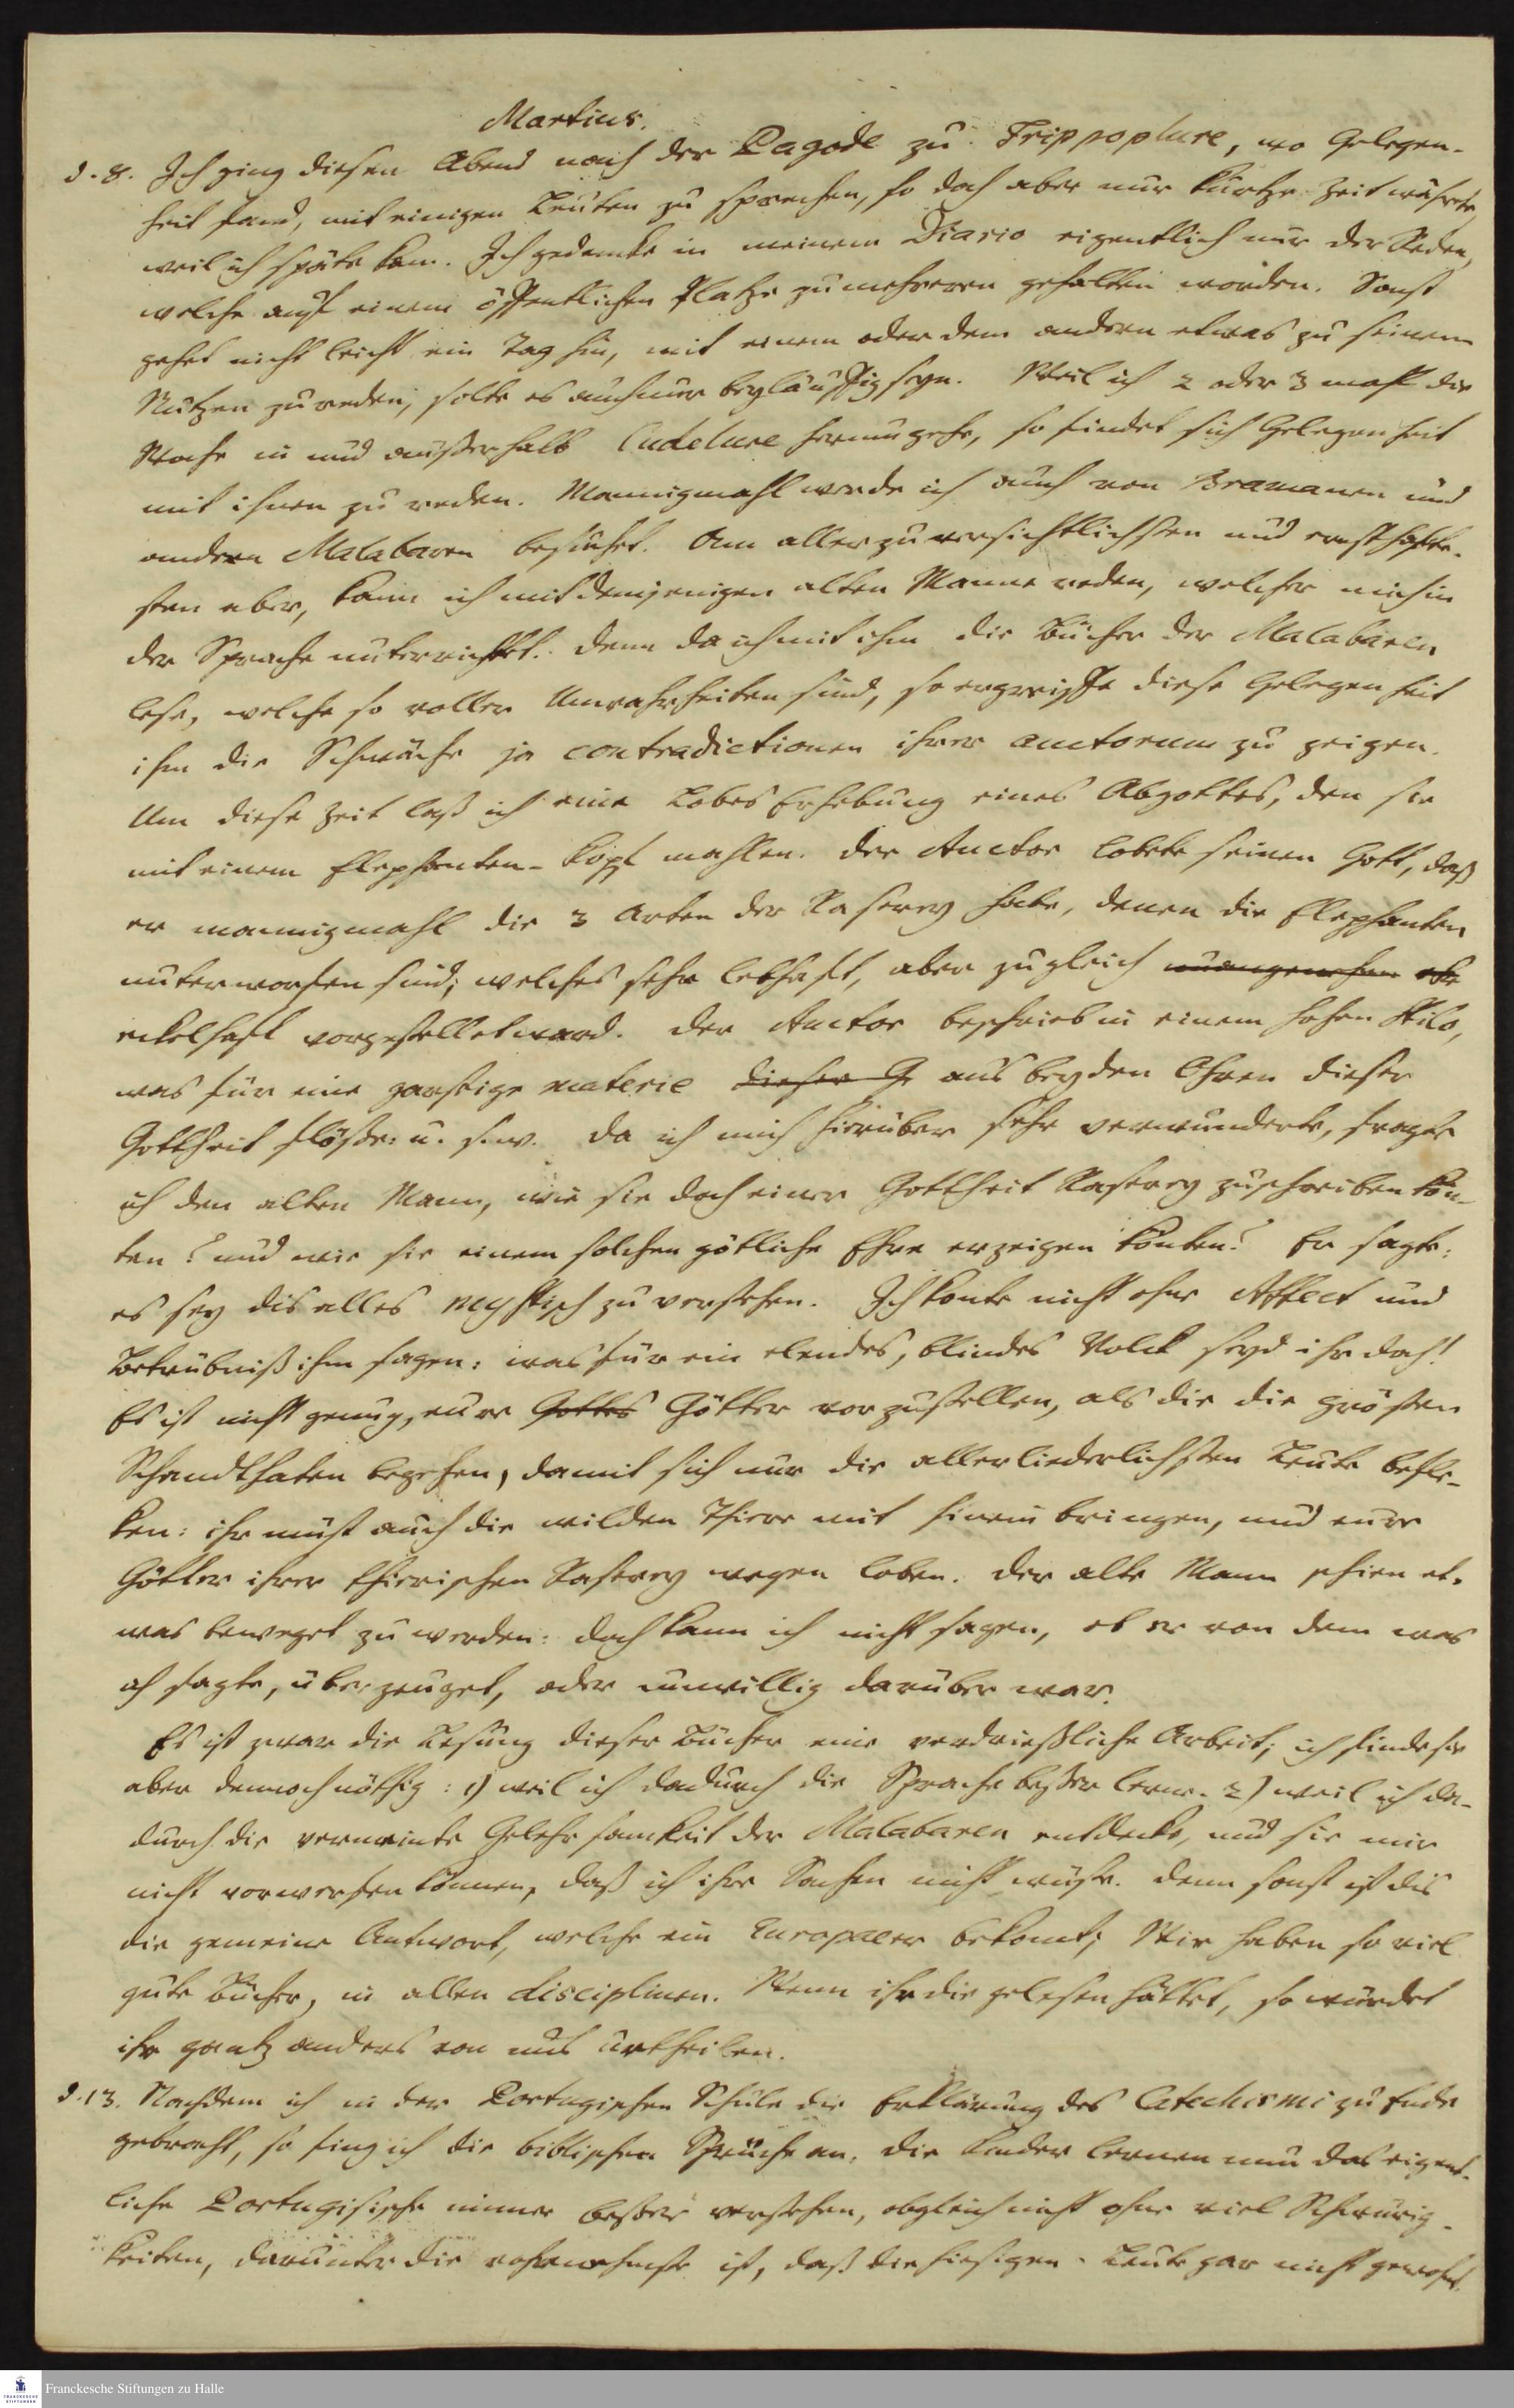 Martius.
d. 8. Ich ging diesen Abend nach der Pagode zu Trippoplure, wo Gelegen-
heit fand, mit einigen Leuten zu sprechen, so doch aber nur kurtze Zeit währete,
weil ich späte kam. Ich gedencke in meinem Diario eigentlich nur der Reden,
welche auf einem öffentlichen Platze zu mehreren gehalten worden. Sonst
gehet nicht leicht ein Tag hin, mit einem oder dem andern etwas zu seinem
Nutzen zu reden, solte es auch nur beyläuffig seyn. Weil ich 2 oder 3 mahl die
Woche in und ausserhalb Cudelure herum gehe, so findet sich Gelegenheit
mit ihnen zu reden. Mannigmahl werde ich auch von Bramanen und
andern Malabaren besuchet. Am allerzuversichtlichsten und ernsthafte-
sten aber, kann ich mit demjenigen alten Manne reden, welcher mich in
der Sprache unterrichtet. Denn da ich mit ihm die Bücher der Malabaren
lese, welche so voller Unwahrheiten sind, so ergreiffe diese Gelegenheit
ihm die Schwäche ja contradictionen ihrer auctorum zu zeigen.
Um diese Zeit laß ich eine Lobes Erhebung eines Abgottes, den sie
mit einem Elephanten-Kopf mahlen. Der Auctor lobete seinen Gott, daß
er mannigmahl die 3 Arten der Raserey habe, denen die Elephanten
unterworfen sind; welches sehr lebhaft, aber zugleich unangenehm
eckelhaft vorgestellet ward. Der Auctor beschrieb in einem hohen Stilo,
was für eine garstige materie dieser G aus beyden Ohren dieser
Gottheit flösse: u. s. w. Da ich mich hierüber sehr verwunderte, fragte
ich den alten Mann, wie sie doch einer Gottheit Raserey zuschreiben kön-
ten? und wie sie einem solchen götliche Ehre erzeigen könten? Er sagte:
es sey dis alles mystisch zu verstehen. Ich konte nicht ohne Affect und
Betrübniß ihm sagen: was für ein elendes, blindes Volck seyd ihr doch!
Es ist nicht genug, eure Gottes Götter vorzustellen, als die die grösten
Schandthaten begehen, damit sich nur die allerliederlichsten Leute befle-
ken: ihr müst auch die wilden Thiere mit hinein bringen, und eure
Götter ihrer thierischen Raserey wegen loben. Der alte Mann schien et-
was beweget zu werden: doch kann ich nicht sagen, ob er von dem was
ich sagte, überzeuget, oder unwillig darüber war.
Es ist zwar die Lesung dieser Bücher eine verdrießliche Arbeit; ich finde sie
aber dennoch nöthig: 1) weil ich dadurch die Sprache besser lerne. 2) weil ich da-
durch die vermeinte Gelehrsamkeit der Malabaren entdecke, und sie mir
nicht vorwerfen können, daß ich ihre Sachen nicht wüste. Denn sonst ist dis
die gemeine Antwort, welche ein Europaeer bekomt; Wir haben so viel
gute Bücher, in allen disciplinen. Wenn ihr die gelesen hättet, so würdet
ihr gantz anders von uns urtheilen.
d. 13. Nachdem ich in der Portugischen Schule die Erklärung des Catechismi zu Ende
gebracht, so fing ich die biblischen Sprüche an. Die Kinder lernen nun das eigent-
liche Portugisische immer besser verstehen, obgleich nicht ohne viel Schwürig-
keiten, darunter die vohrnehmste ist, daß die hiesigen Leute gar nicht gewohnt
Franckesche Stiftungen zu Halle
FRANCKESCHE
STIFTUNGEN